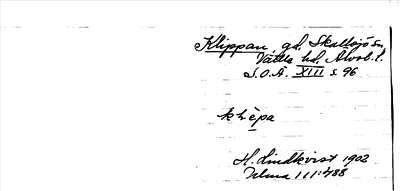 Klippan, gd. Skallsjö sn
Vättle hd. Älvsb. l.
S.O.Ä. XIII s. 96
klẹ̀pa
H. Lindkvist 1902
111:488